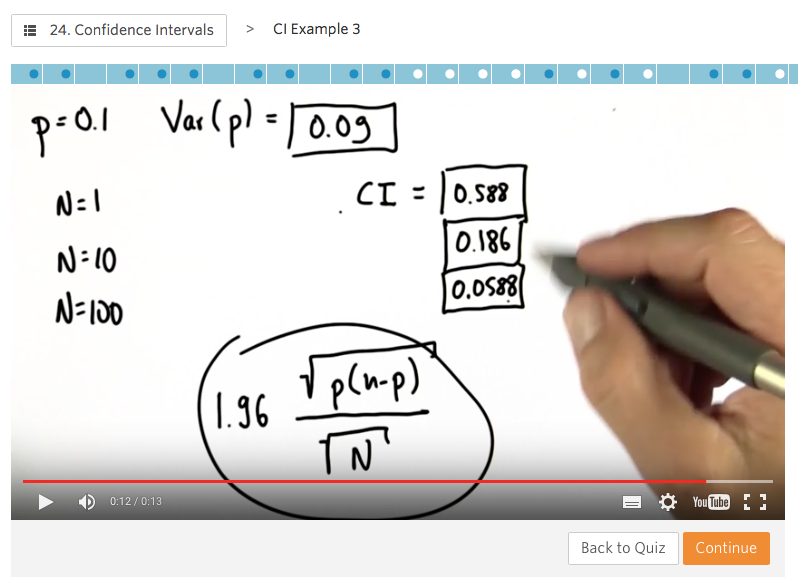 24. Confidence Intervals > CI Example 3
p=0.1 Var(p) = 0.09
N=1
N=10
N=100
CI = 0.588
0.186
0.0588
1.96 √p(n-p)
√N
0:12 / 0:13
YouTube
Back to Quiz Continue